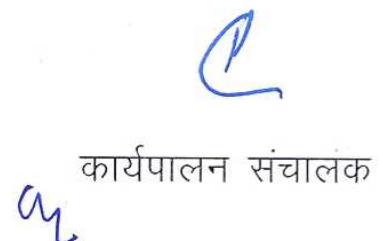 कार्यपालन संचालक